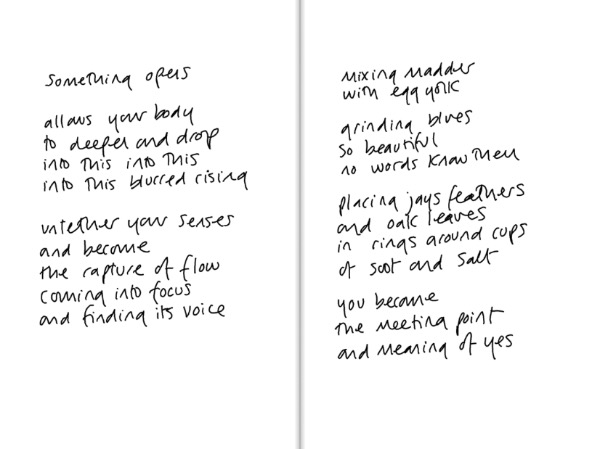 something opens
allows your body
to deepen and drop
into this into this
into this blurred rising
untether your senses
and become
the rapture of flow
coming into focus
and finding its voice
mixing madder
with egg yolk
grinding blues
so beautiful
no words know them
placing jays feathers
and oak leaves
in rings around cups
of soot and salt
you become
the meeting point
and meaning of yes